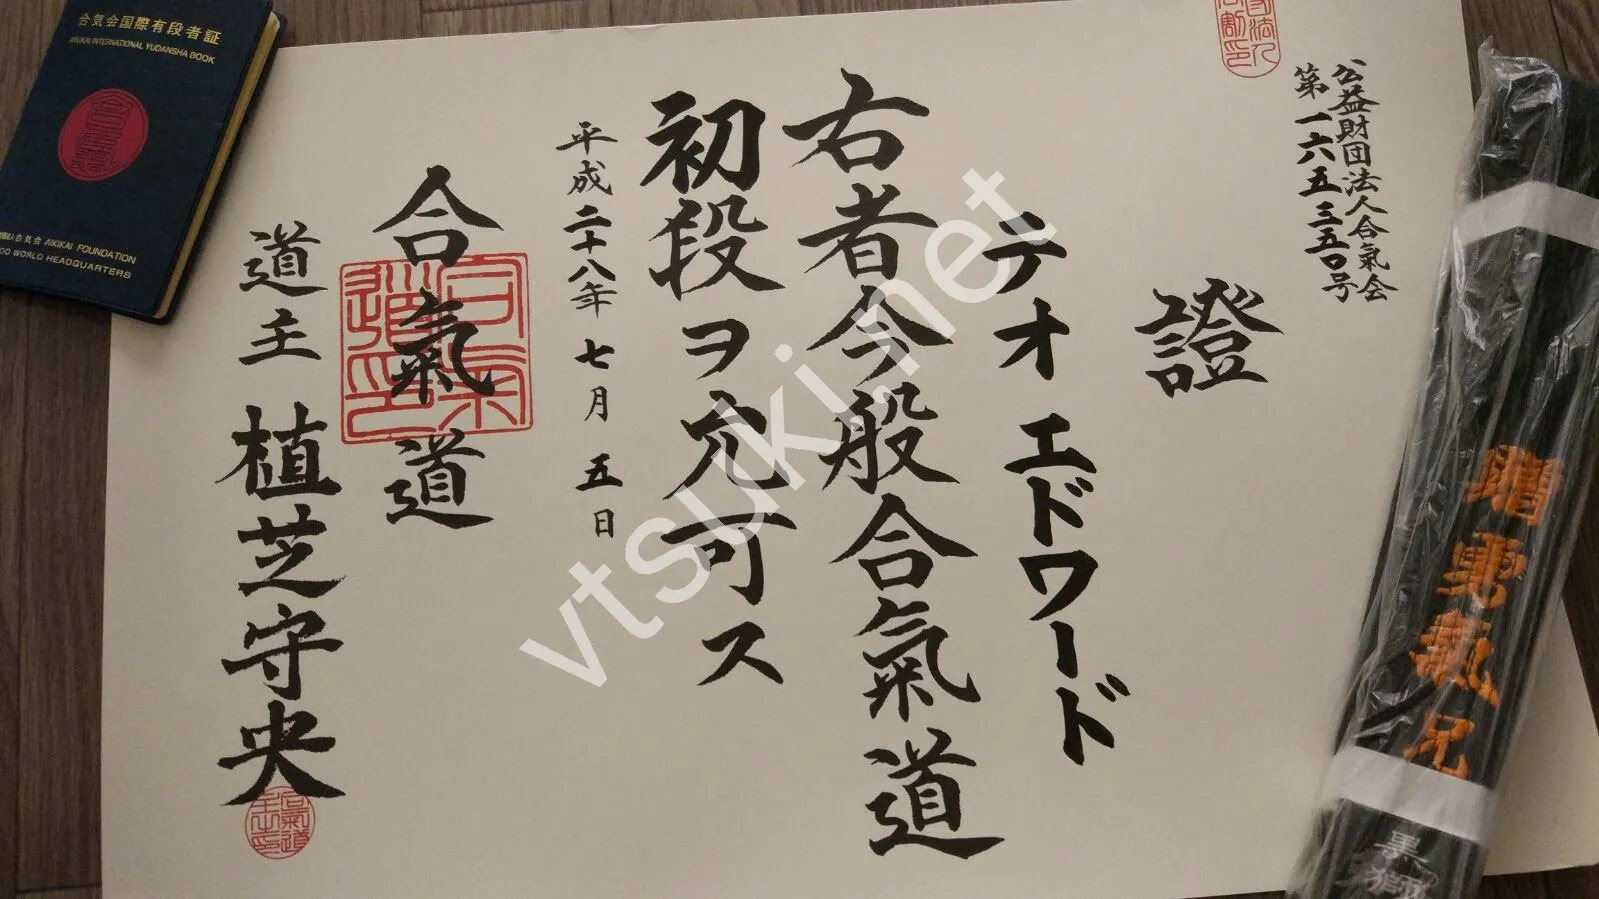 合気会国際有段者証
AIKIKAI INTERNATIONAL YUDANSHA BOOK
合気会 AIKIKAI FOUNDATION
WORLD HEADQUARTERS
公益財団法人合氣会
第一六五三五〇号
證
テオ エドワード
右者今般合氣道
初段ヲ允可ス
平成二十八年七月五日
合氣道
道主 植芝守央
vtsuki.net
黒